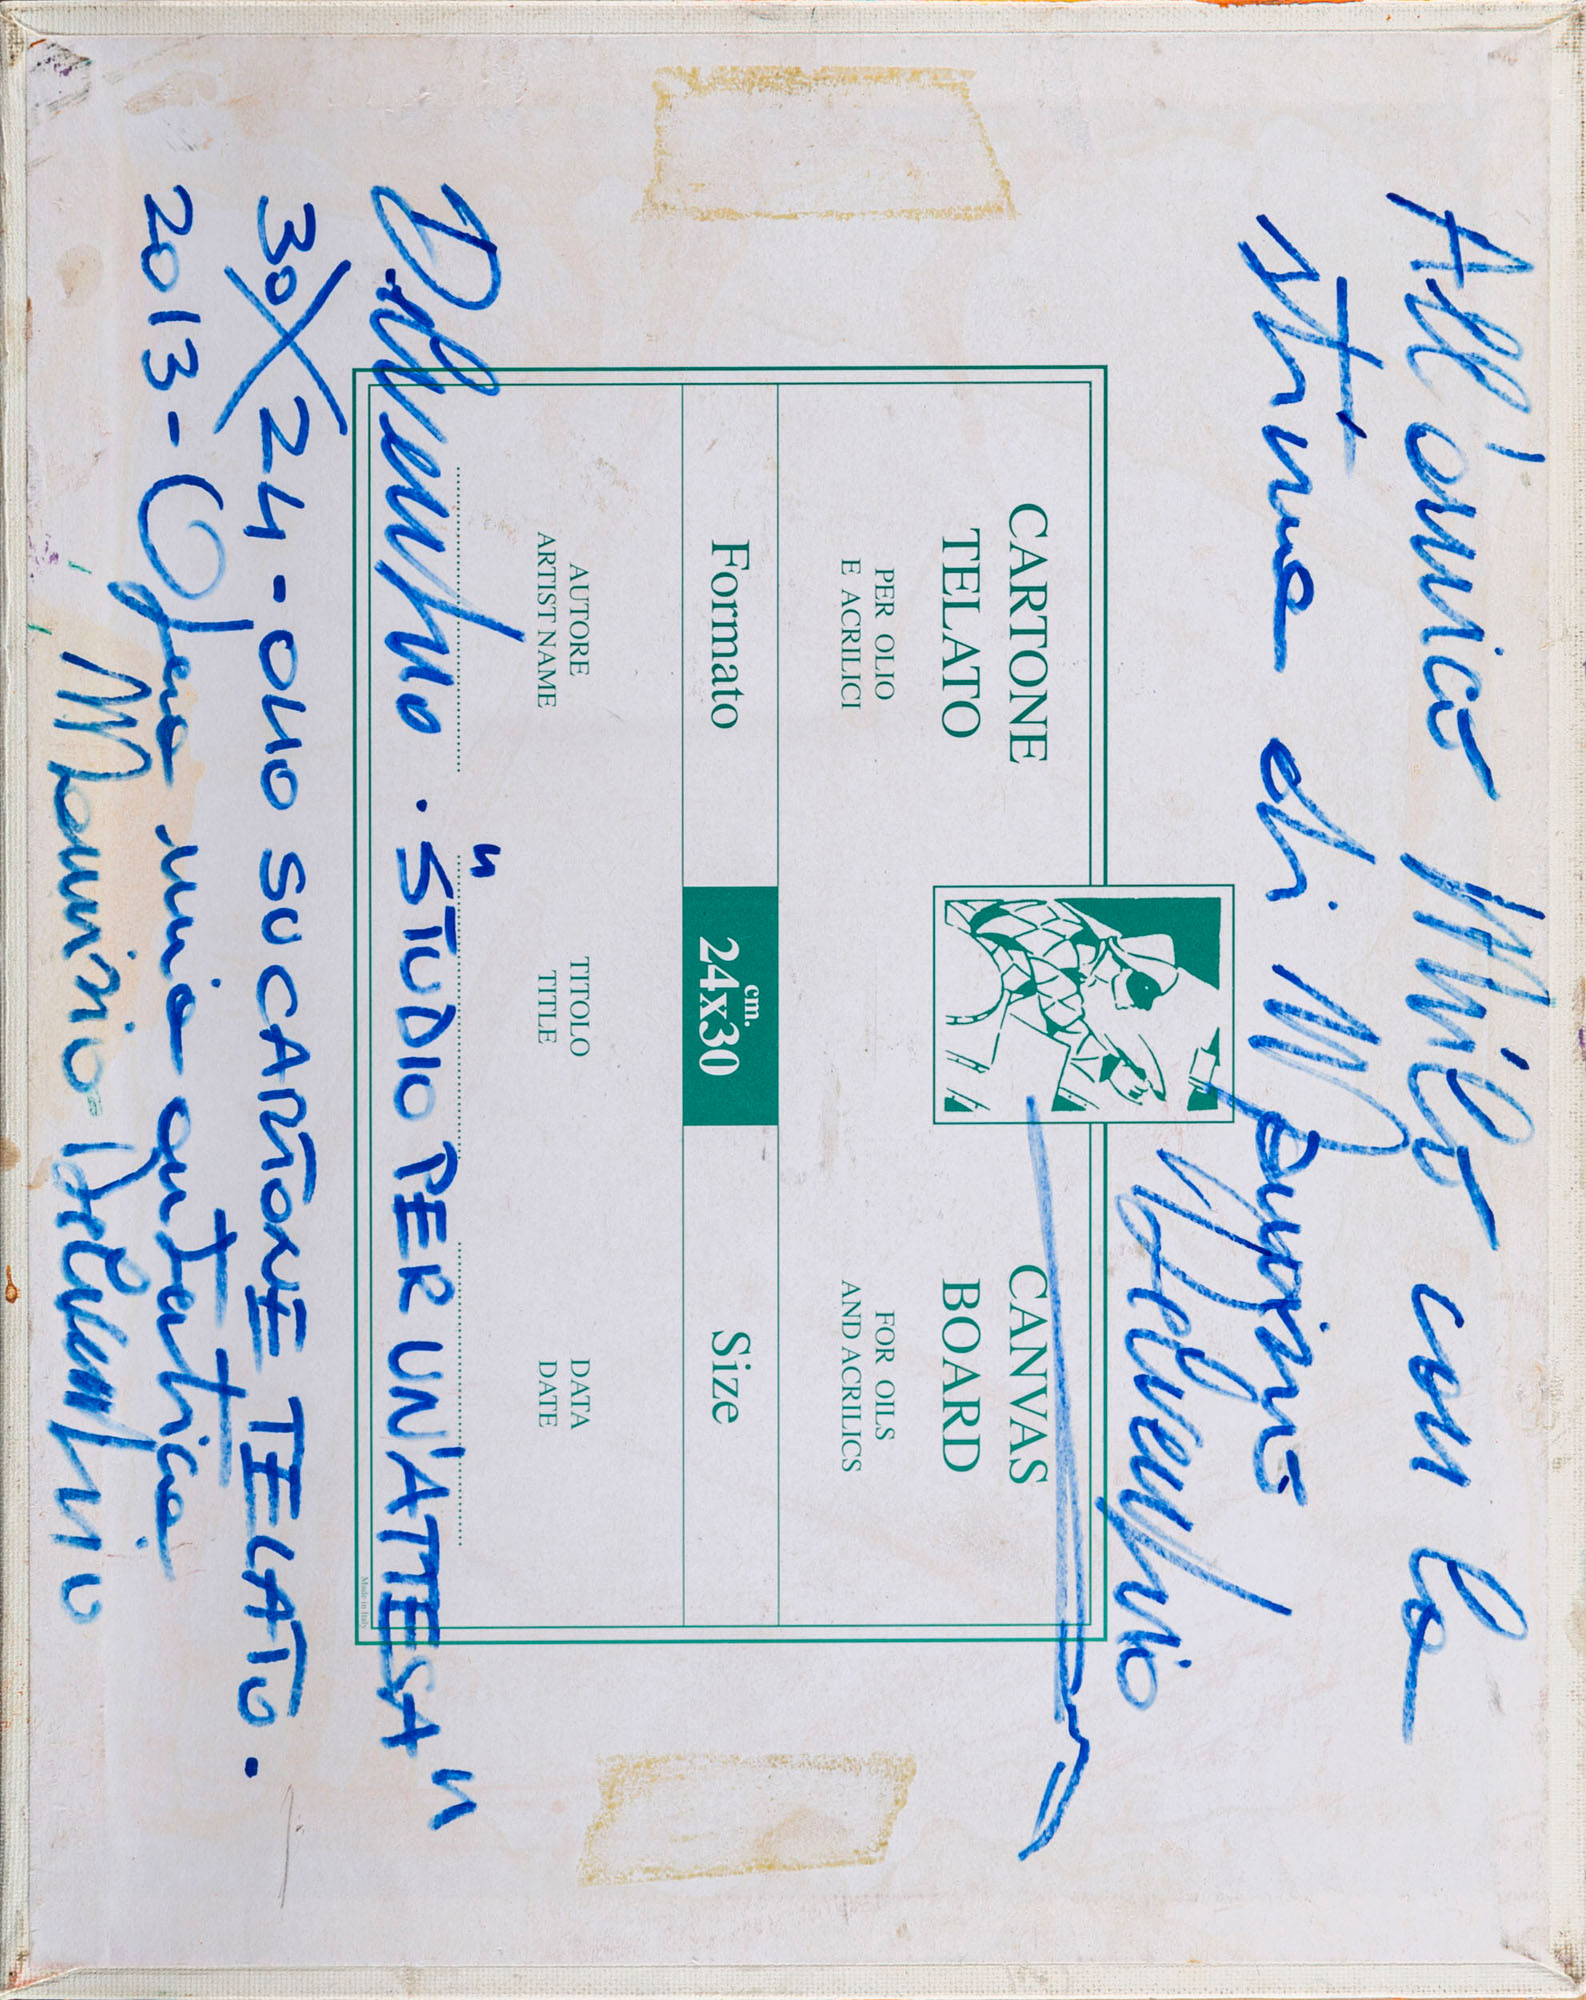 All'amico Milo con la
stima di Maurizio
Delvecchio
CARTONE
TELATO
PER OLIO
E ACRILICI
CANVAS
BOARD
FOR OILS
AND ACRILICS
Formato
cm.
24x30
Size
AUTORE
ARTIST NAME
TITOLO
TITLE
DATA
DATE
Delvecchio. "STUDIO PER UN'ATTESA"
Made in Italy
30X24-OLIO SU CARTONE TELATO.
2013-Opera mia autentica
Maurizio Delvecchio